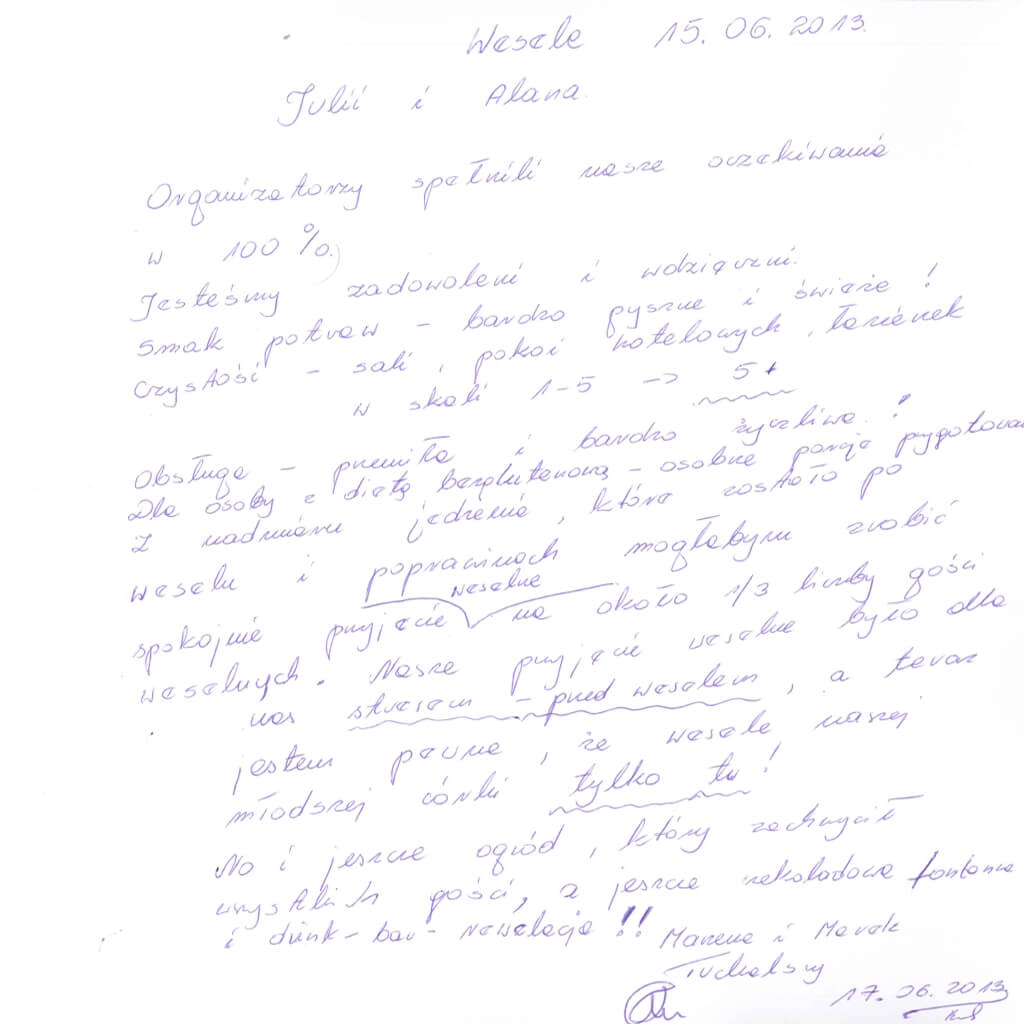 Wesele 15.06.2013.
Julii i Alana.
Organizatorzy spełnili nasze oczekiwania
w 100%.
Jesteśmy zadowoleni i wdzięczni.
Smak potraw - bardzo pyszne i świeże!
Czystość - sali, pokoi hotelowych, łazienek
w skali 1-5 -> 5+
Obsługa - przemiła i bardzo życzliwa!
Dla osoby z dietą bezglutenową - osobne porcje
Z nadmiaru jedzenia, które zostało po
weselu i poprawinach mogłabym zrobić
weselne
spokojnie przyjęcie na około 1/3 liczby gości
weselnych. Nasze przyjęcie weselne było dla
nas stresem - przed weselem, a teraz
jestem pewna, że wesele naszej
młodszej córki tylko tu!
No i jeszcze ogród, który zachwycił
wszystkich gości, a jeszcze czekoladowa fontanna
i drink-bar - rewelacja!! Marzena i Marek
17.06.2013